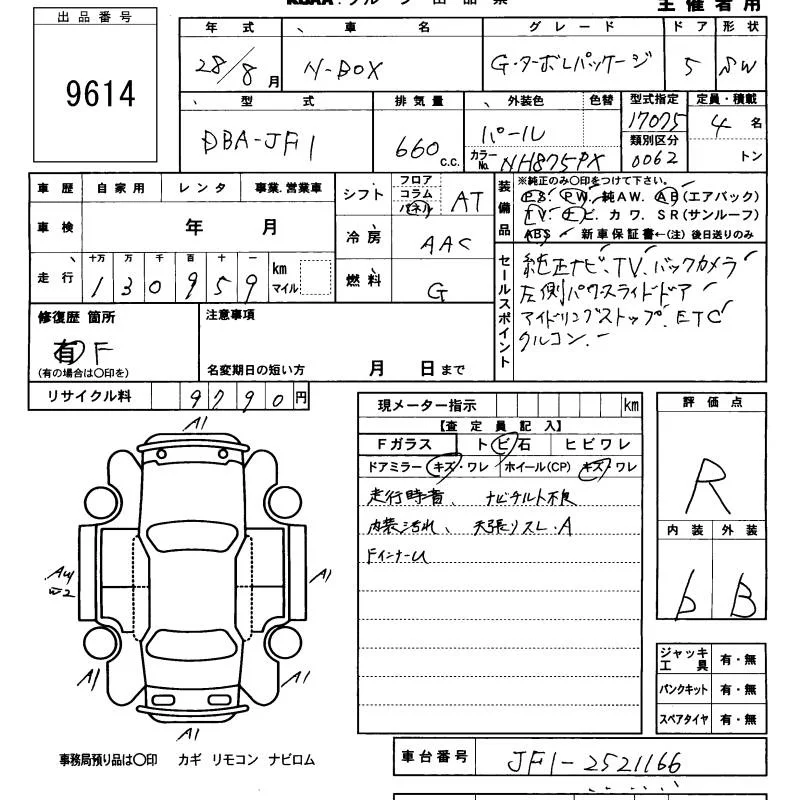 主催者用
出品番号
9614
年式 車名 グレード ドア 形状
28/8月 N-BOX G・ターボLパッケージ 5 SW
型式 排気量 外装色 色替 型式指定 定員・積載
DBA-JF1 660 c.c. パール 17075 4 名
カラーNo. NH875PX 類別区分 0062 トン
車歴 自家用 レンタ 事業.営業車
車検 年 月
走行 十万 万 千 百 十 一 km マイル
1 3 0 9 5 9
シフト フロア コラム パネル AT
冷房 AAC
燃料 G
装備品
※純正のみ〇印をつけて下さい。
P.S. PW. 純AW. AB(エアバック)
TV. ナビ. カワ. SR(サンルーフ)
ABS 新車保証書←(注) 後日送りのみ
セールスポイント
純正ナビ、TV、バックカメラ
左側パワースライドドア
アイドリングストップ.ETC
クルコン.
修復歴 箇所
有 F
(有の場合は〇印を)
注意事項
名変期日の短い方 月 日まで
リサイクル料 9790円
現メーター指示 km
【査定員記入】
Fガラス トビ石 ヒビワレ
ドアミラー キズ・ワレ ホイール(CP) キズ・ワレ
走行時音、ナビチルト不良
内装汚れ、天張リスレ・A
FインナーU
評価点
R
内装 外装
b B
ジャッキ工具 有・無
パンクキット 有・無
スペアタイヤ 有・無
A1
A1
W2
A1
A1
A1
A1
事務局預り品は〇印 カギ リモコン ナビロム
車台番号 JF1-2521166